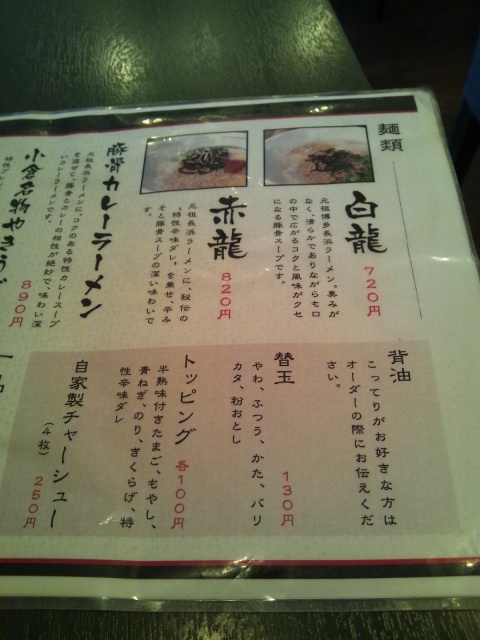 麺類
白龍
720円
元祖博多長浜ラーメン。臭みが
なく、滑らかでありながらモロ
の中で広がるコクと風味がクセ
になる豚骨スープです。
赤龍
820円
元祖長浜ラーメンに、秘伝の
"特性辛味ダレ"を乗せ、辛み
そと豚骨スープの深い味わいで
す。
豚骨カレーラーメン
元祖長浜ラーメンに、コクのある特性カレースープ
を混ぜて、豚骨とカレーの相性が絶妙で、味わい深
いカレーラーメンです。
890円
小倉名物やきうど
背油
こってりがお好きな方は
オーダーの際にお伝えくだ
さい。
替玉
130円
やわ、ふつう、かた、バリ
カタ、粉おとし
トッピング
各100円
半熟味付きたまご、もやし、
青ねぎ、のり、きくらげ、特
性辛味ダレ
自家製チャーシュー
(4枚)
250円